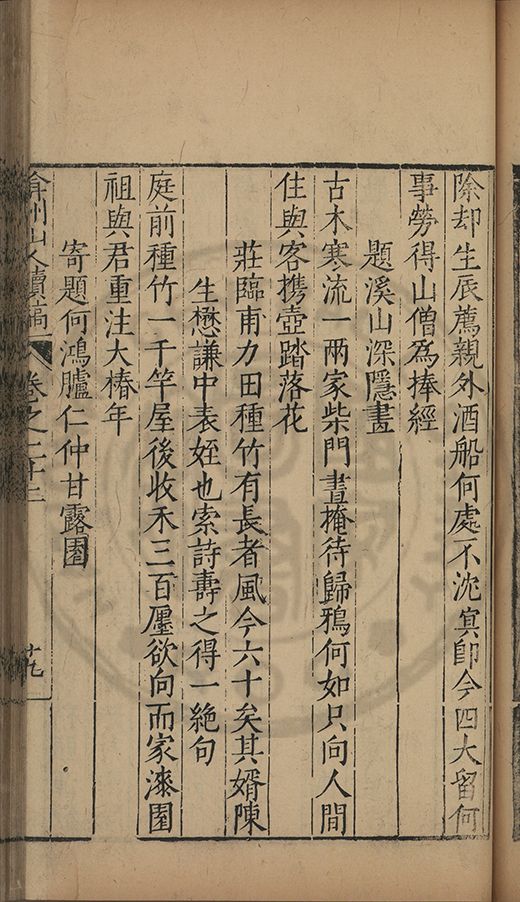 除却生辰薦親外酒船何處不沈冥即今四大留何
事勞得山僧爲捧經
題溪山深隱畫
古木寒流一兩家柴門晝掩待歸鴉何如只向人間
住與客携壺踏落花
莊臨甫力田種竹有長者風今六十矣其婿陳
生懋謙中表姪也索詩壽之得一絶句
庭前種竹一千竿屋後收禾三百廛欲向而家漆園
祖與君重注大椿年
寄題何鴻臚仁仲甘露園
弇州山人續稿 卷之二十三